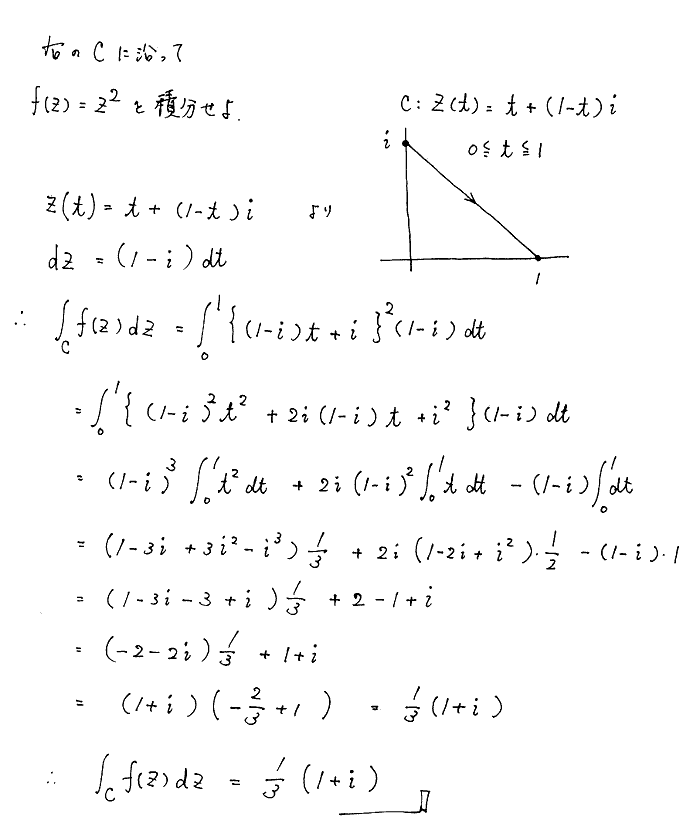 右の C に沿って
f(z) = z² を積分せよ.
C : z(t) = t + (1-t) i
0 ≦ t ≦ 1
i
1
z(t) = t + (1-t) i より
dz = (1-i) dt
∴ ∫_C f(z) dz = ∫₀¹ { (1-i) t + i }² (1-i) dt
= ∫₀¹ { (1-i)² t² + 2i (1-i) t + i² } (1-i) dt
= (1-i)³ ∫₀¹ t² dt + 2i (1-i)² ∫₀¹ t dt - (1-i) ∫₀¹ dt
= (1-3i + 3i² - i³) 1/3 + 2i (1-2i + i²)・1/2 - (1-i)・1
= (1-3i-3+i) 1/3 + 2-1+i
= (-2-2i) 1/3 + 1+i
= (1+i) (-2/3 + 1) = 1/3 (1+i)
∴ ∫_C f(z) dz = 1/3 (1+i)